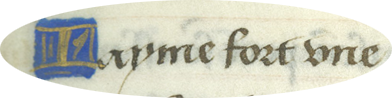 Iayme fort vne